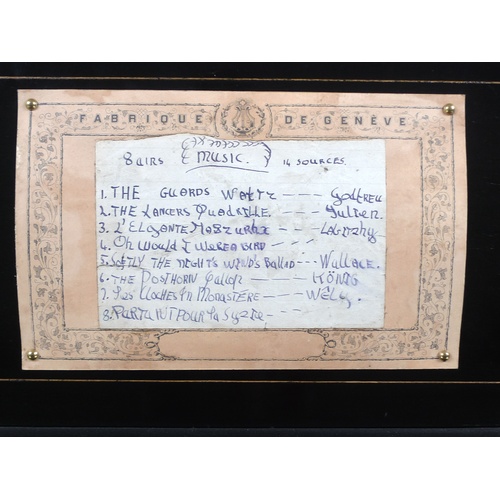 FABRIQUE DE GENÈVE
8 airs { MUSIC. } 14 SOURCES
1. THE GUARDS WALTZ --- Godfrey
2. THE LANCERS QUADRILLE. --- Julien.
3. L'ELEGANTE MAZURKA ---
4. Oh Would I WERE A BIRD ---
5. SOFTLY THE NIGHTS WINDS BALLAD --- WALLACE.
6. THE POSTHORN GALLOP --- KÖNIG
7. LES CLOCHES DU MONASTERE --- WÉLY.
8. PARTANT POUR LA SYRIE ---